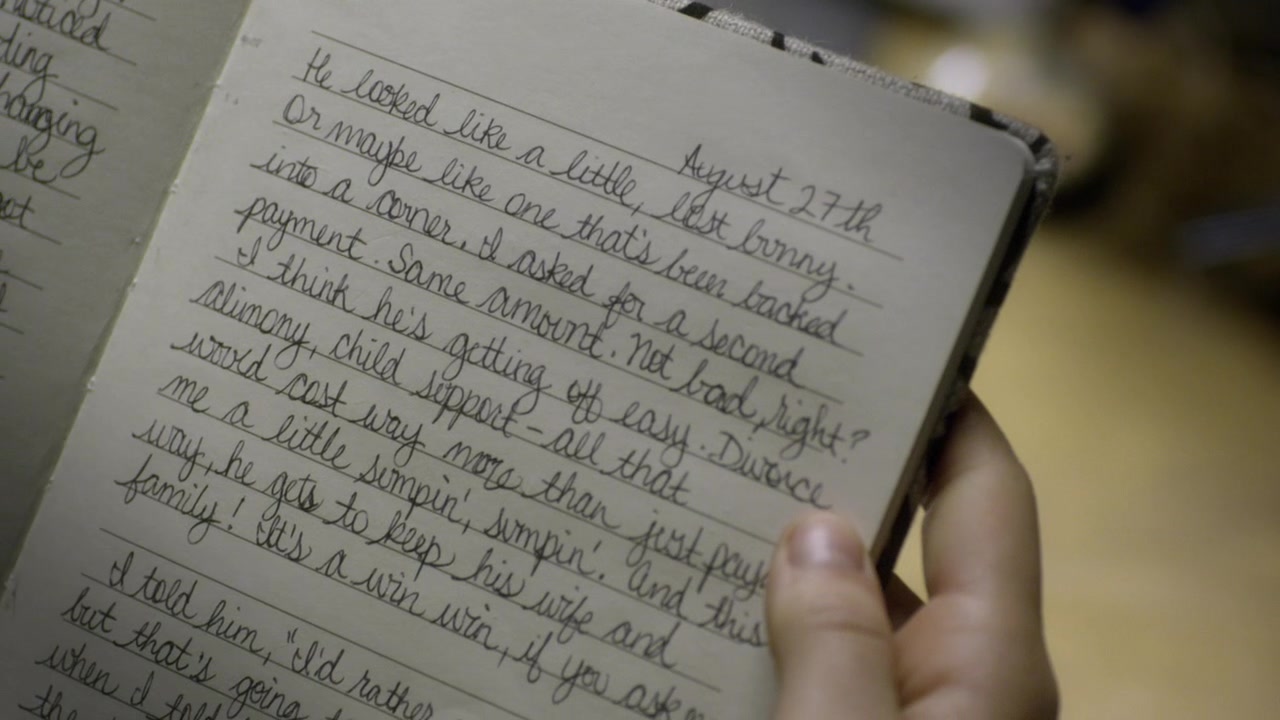 noticed
ting
hanging
be
August 27th
He looked like a little, lost bunny.
Or maybe like one that's been backed
into a corner. I asked for a second
payment. Same amount. Not bad, right?
I think he's getting off easy. Divorce
alimony, child support - all that
would cost way more than just paying
me a little sumpin', sumpin'. And this
way, he gets to keep his wife and
family! It's a win win, if you ask me
I told him, "I'd rather
but that's going
when I told
the